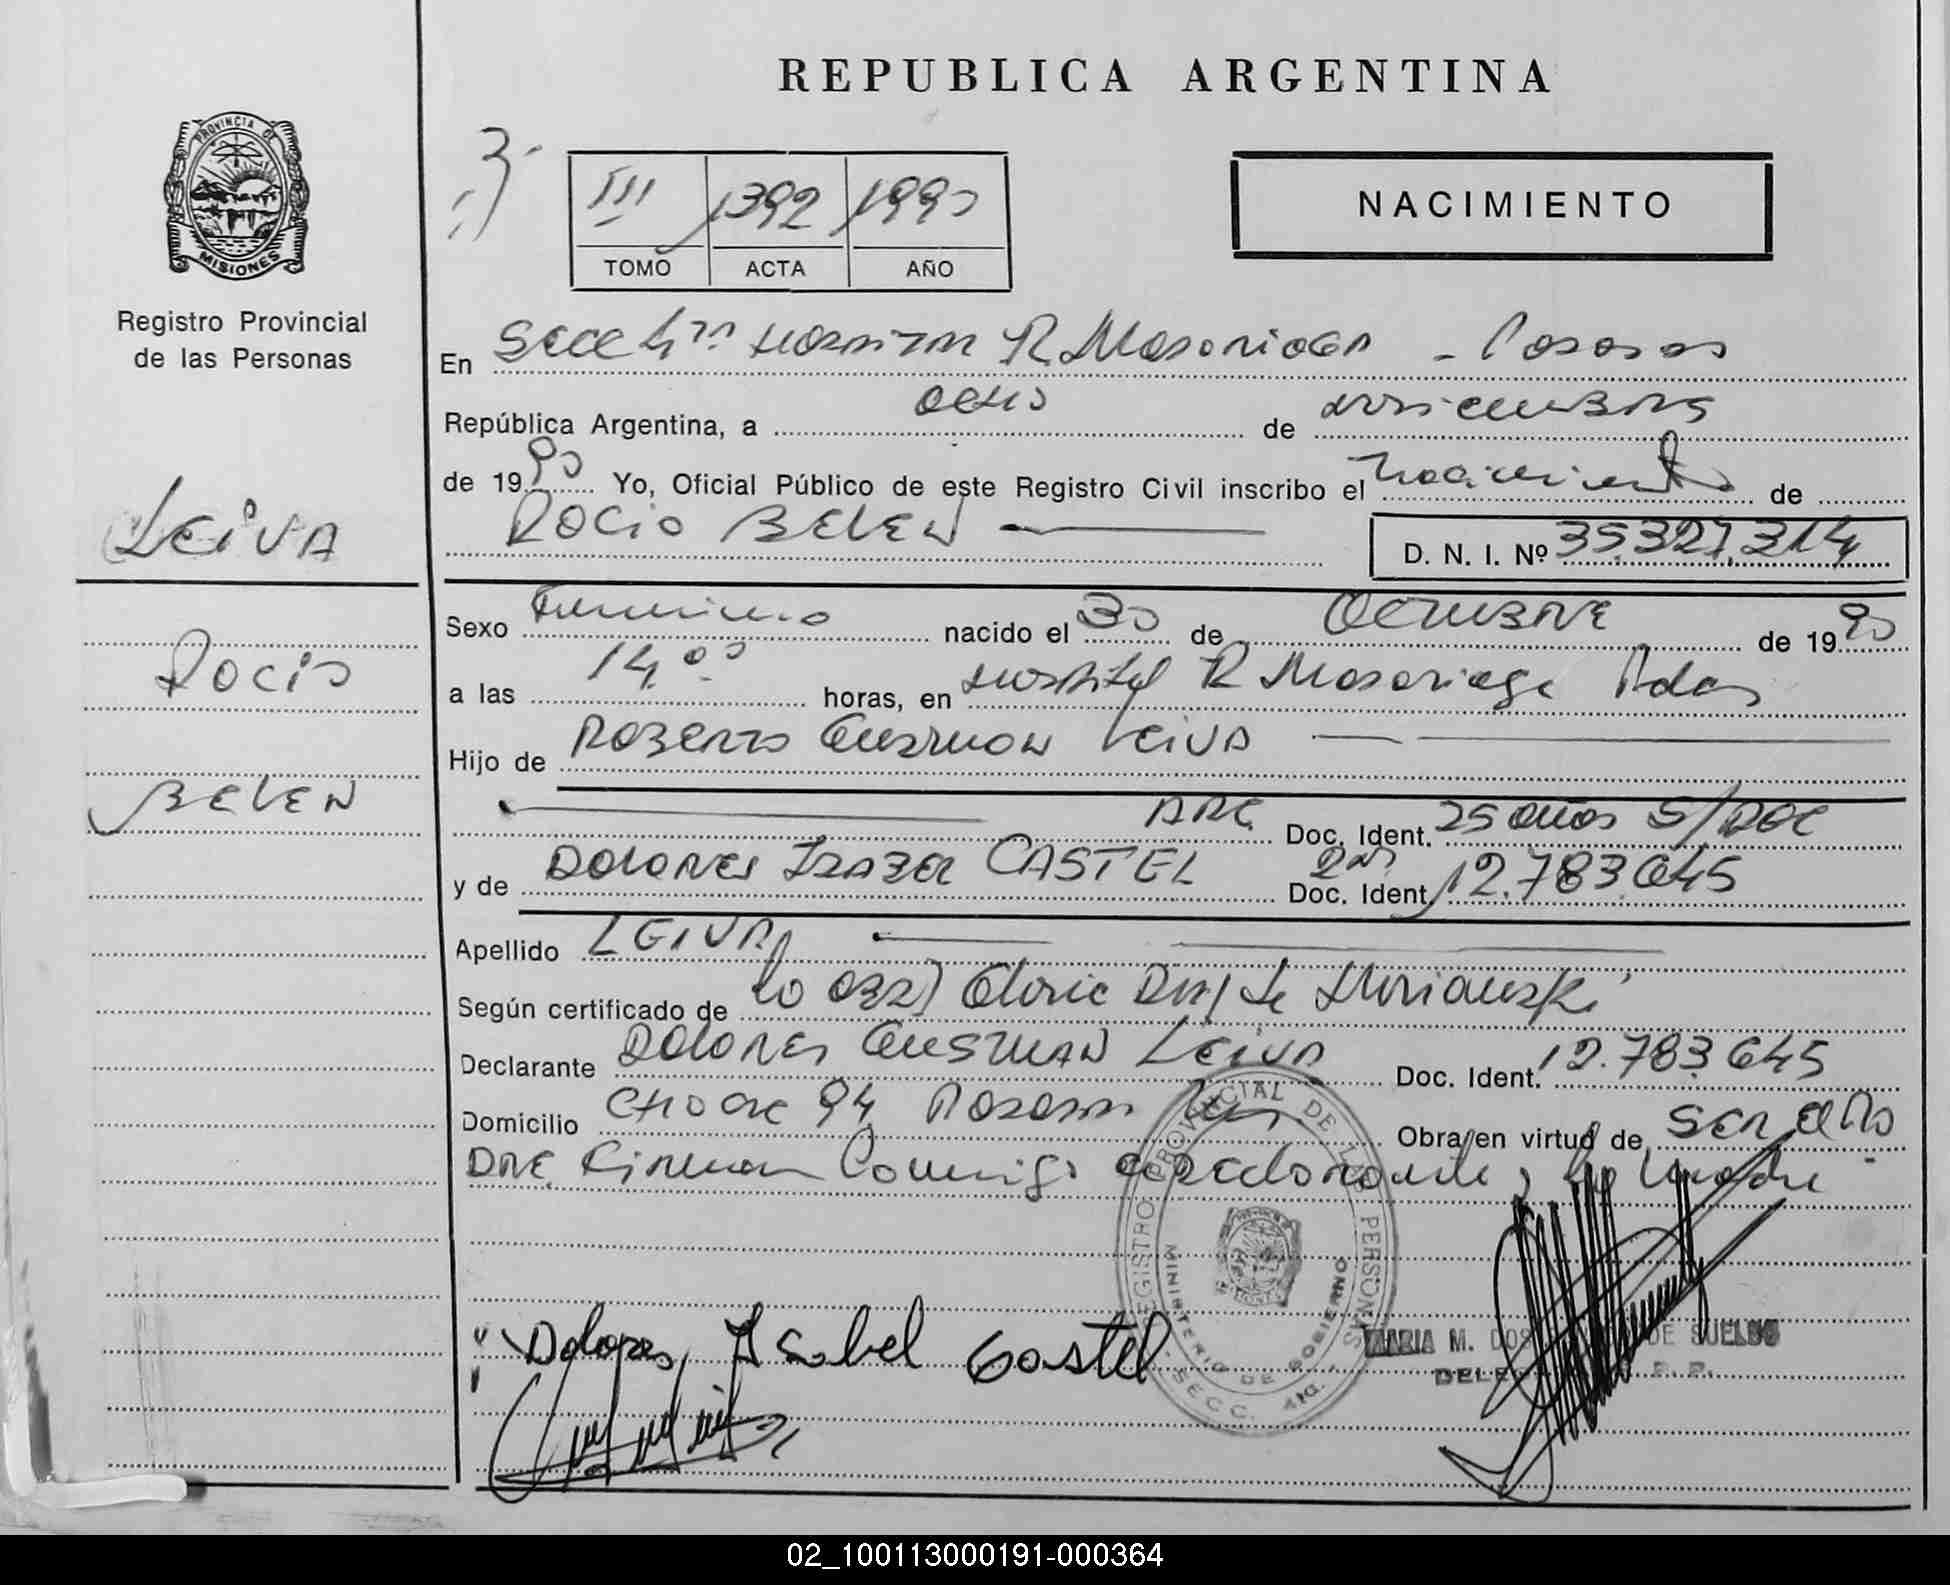 REPUBLICA ARGENTINA
PROVINCIA DE
MISIONES
Registro Provincial
de las Personas
LEIVA
ROCIO
BELEN
III 1392 1990
TOMO ACTA AÑO
NACIMIENTO
En Secc 4ta Hospital R. Madariaga - Posadas
República Argentina, a ocho de diciembre
de 1990 Yo, Oficial Público de este Registro Civil inscribo el nacimiento de
ROCIO BELEN D. N. I. Nº 35.327.314
Sexo Femenino nacido el 30 de OCTUBRE de 1990
a las 14,00 horas, en Hospital R Madariaga Pdas
Hijo de ROBERTO GUZMAN LEIVA
ARG. Doc. Ident. 25 años S/DOC
y de DOLORES ISABEL CASTEL Doc. Ident. 12.783.645
Apellido LEIVA
Según certificado de lo obst
Declarante DOLORES GUSMAN LEIVA Doc. Ident. 12.783.645
Domicilio 94 Posadas Obra en virtud de SER el PA
DRE. Firman Conmigo declarante, la madre
REGISTRO PROVINCIAL DE LAS PERSONAS
MINISTERIO DE GOBIERNO
SECC. 4ta.
Dolores, Isabel Gastel
MARIA M. DOS DE SUELDO
02_100113000191-000364